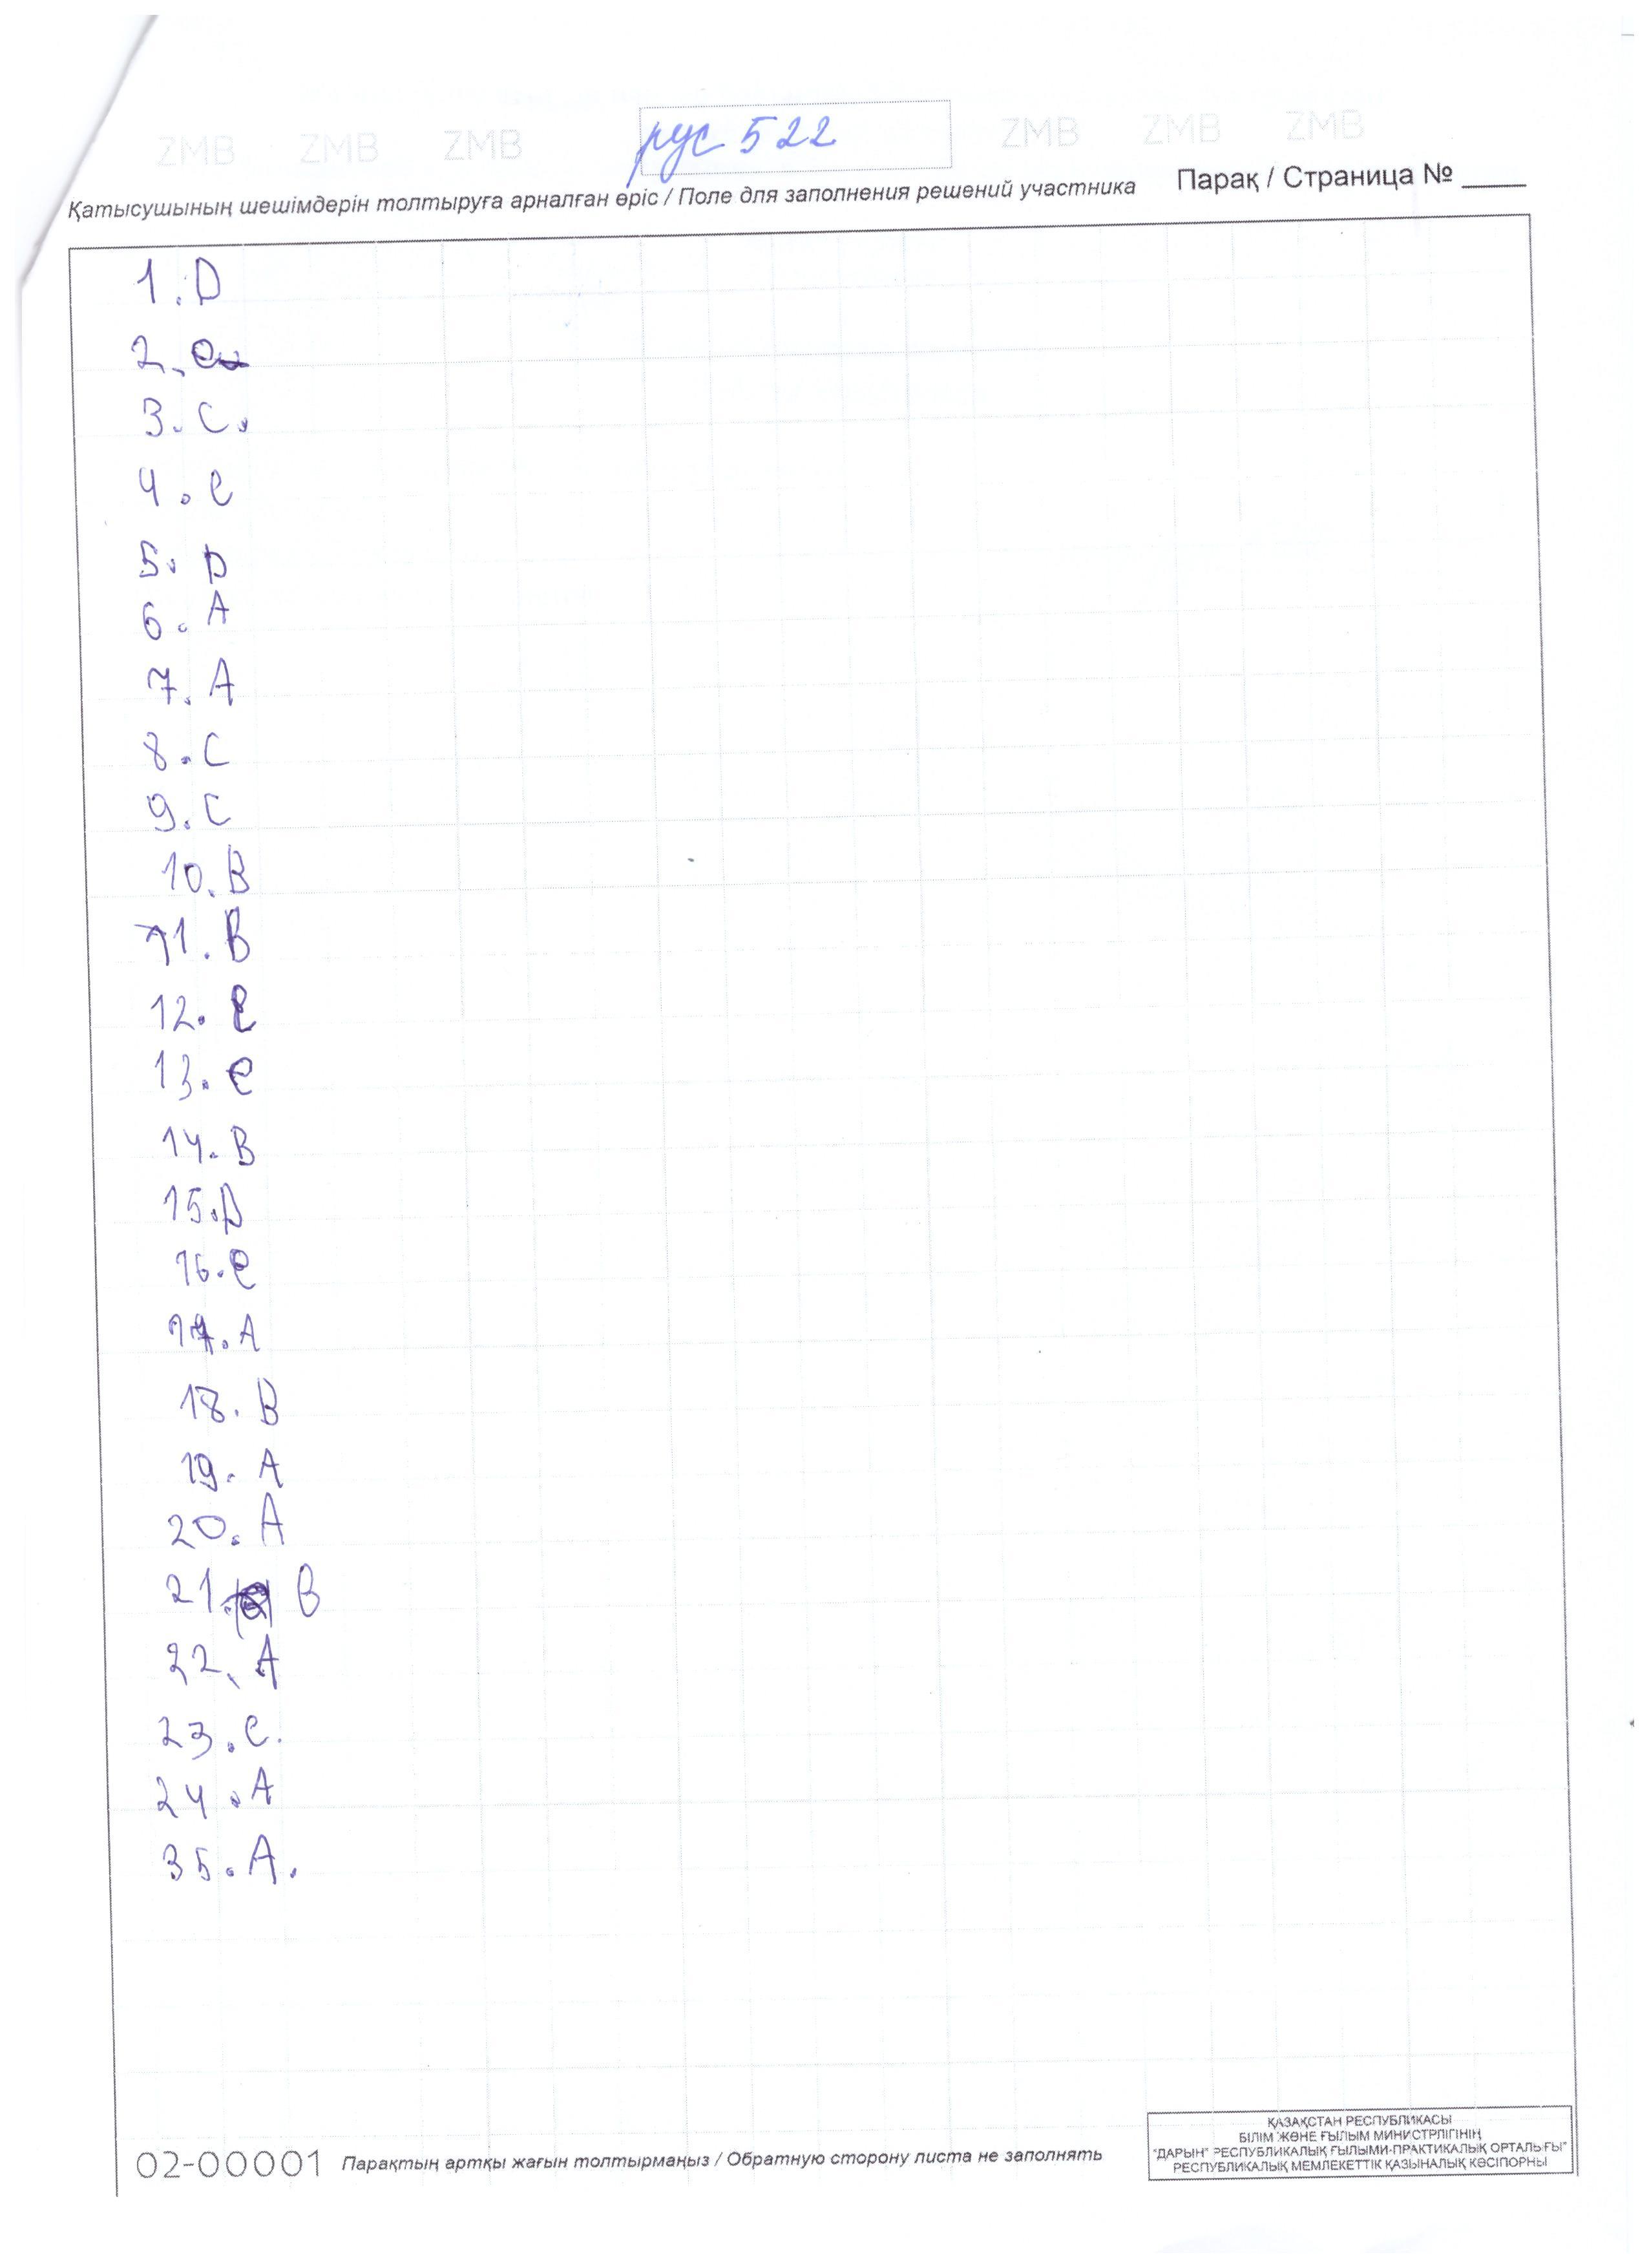 ZMB ZMB ZMB рус 522 ZMB ZMB ZMB
Қатысушының шешімдерін толтыруға арналған өріс / Поле для заполнения решений участника Парақ / Страница № ____
1. D
2. e
3. C.
4. e
5. D
6. A
7. A
8. C
9. C
10. B
11. B
12. e
13. e
14. B
15. D
16. e
17. A
18. B
19. A
20. A
21. B
22. A
23. e.
24. A
35. A.
02-00001 Парақтың артқы жағын толтырмаңыз / Обратную сторону листа не заполнять
ҚАЗАҚСТАН РЕСПУБЛИКАСЫ
БІЛІМ ЖӘНЕ ҒЫЛЫМ МИНИСТРЛІГІНІҢ
"ДАРЫН" РЕСПУБЛИКАЛЫҚ ҒЫЛЫМИ-ПРАКТИКАЛЫҚ ОРТАЛЫҒЫ"
РЕСПУБЛИКАЛЫҚ МЕМЛЕКЕТТІК ҚАЗЫНАЛЫҚ КӘСІПОРНЫ